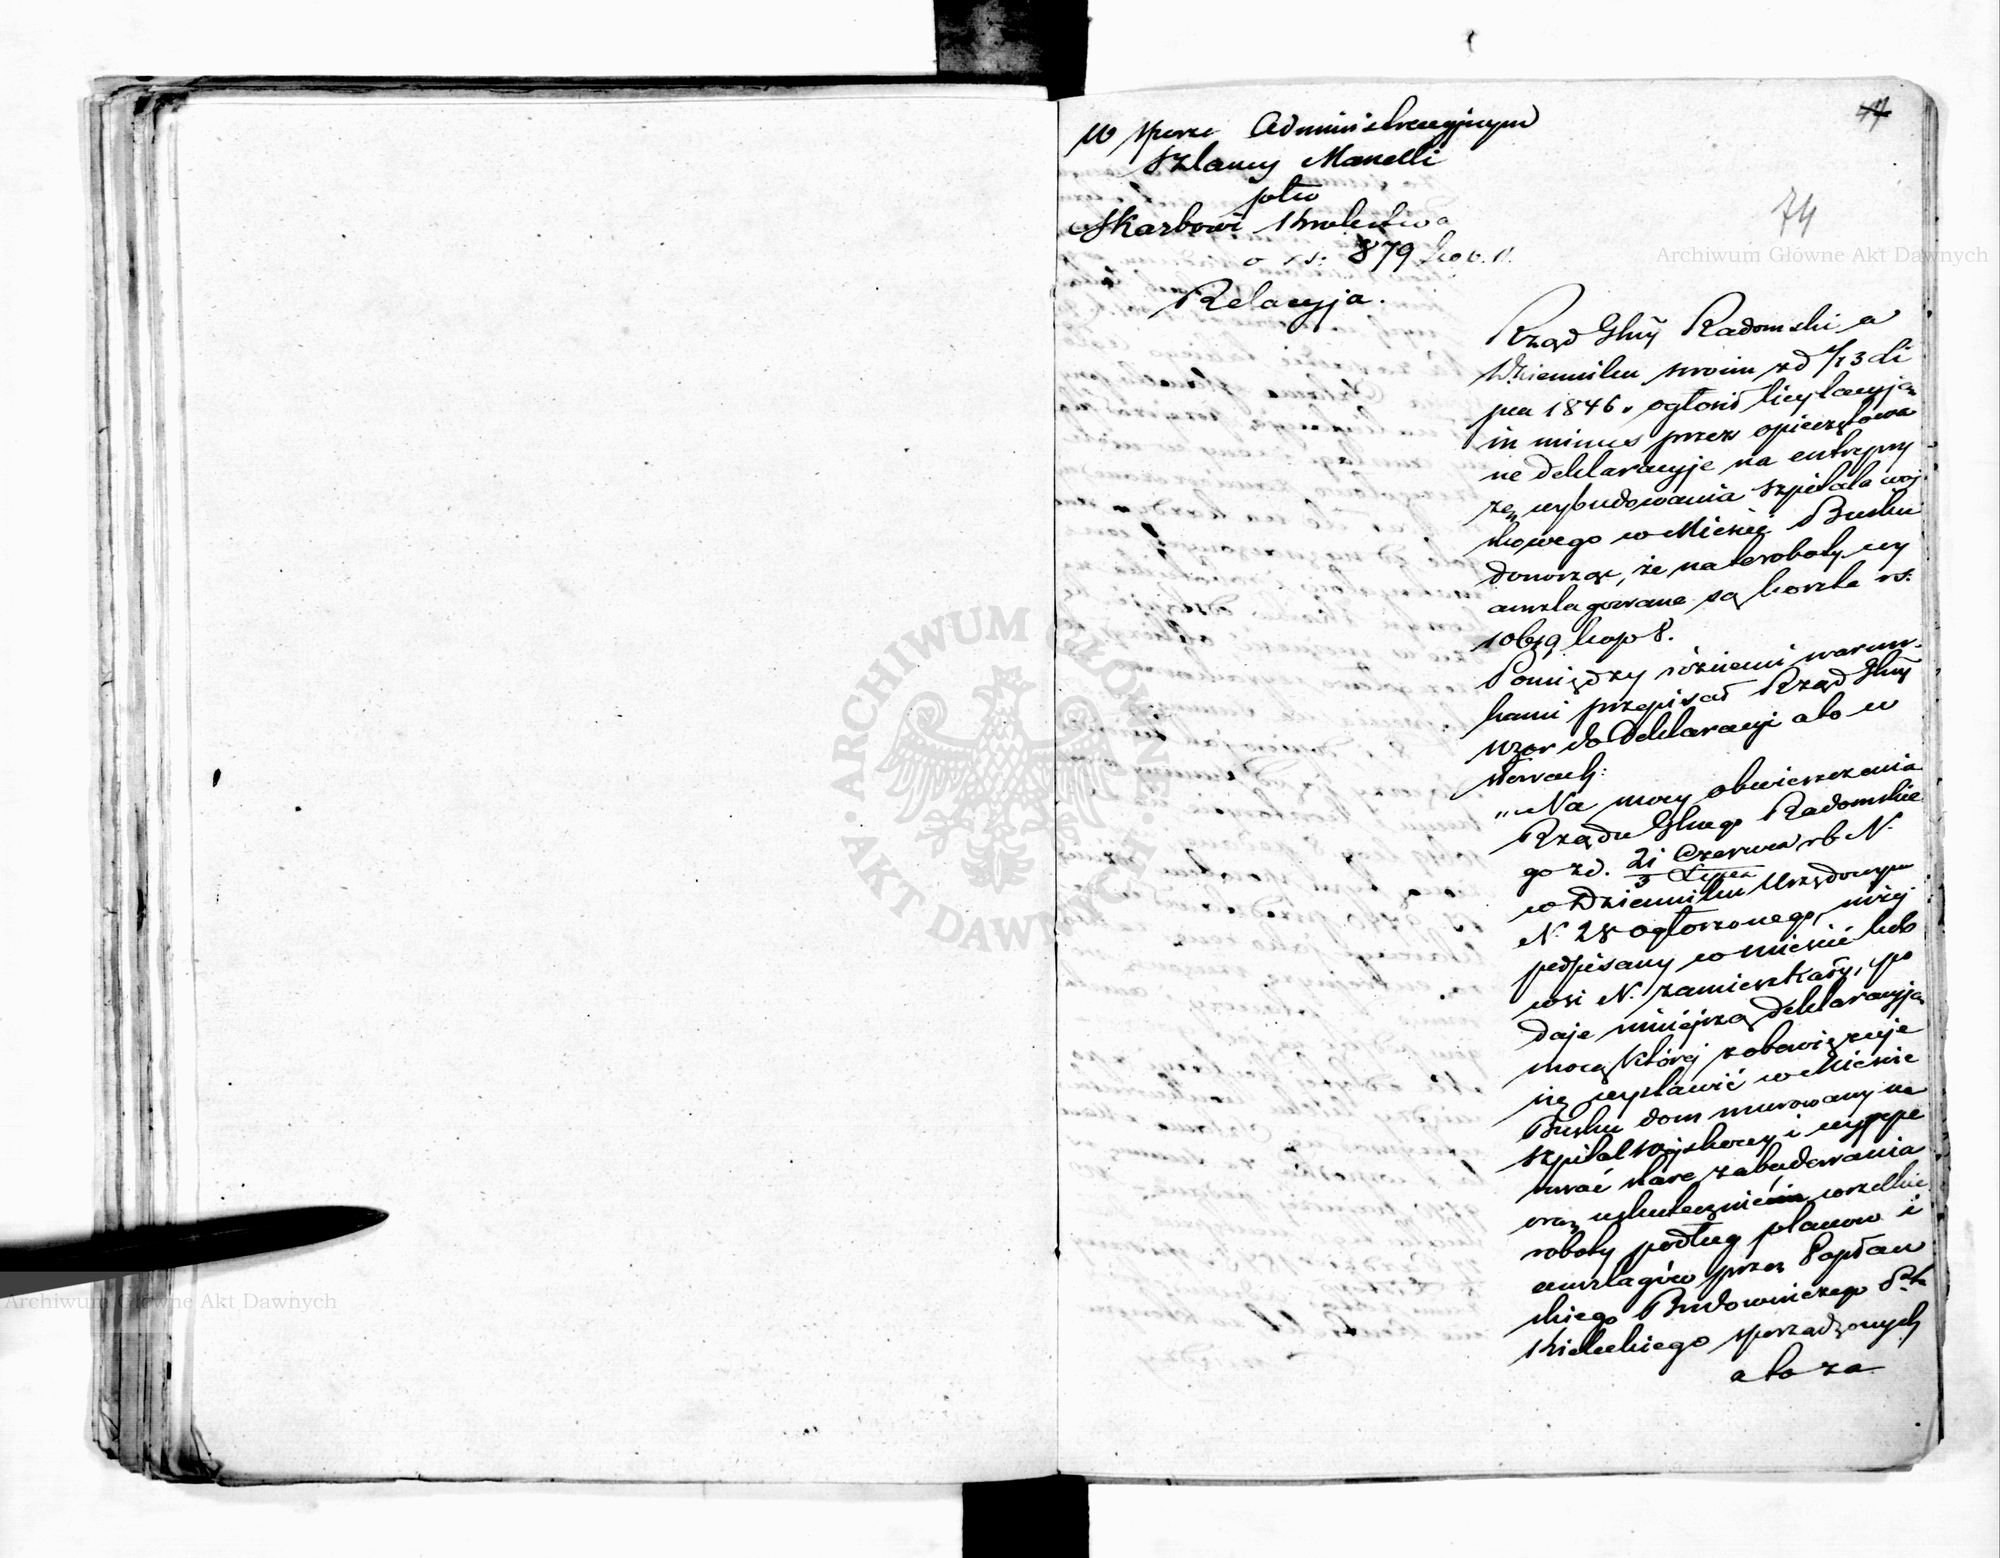 74
W sporze Administracyjnym
Szlamy Manelli
ptko
Skarbowi Królestwa
o rs: 879 kop.
Relacyja.
Rząd Gbny Radomski w
Dzienniku swoim zd 1/13 Li
pca 1846 r ogłosił licytacyją
in minus przez opieczętowa
ne deklaracyje na entrepry
zę wybudowania szpitala woj
skowego w Mieście Busku
donosząc, że na te roboty wy
anszlagowane są koszta rs:
kop 8.
Pomiędzy różnemi warun-
kami przepisał Rząd Gbny
wzor do Deklaracyi a to w
słowach:
„Na mocy obwieszczenia
Rządu Gbnego Radomskie
go zd. 21 Czerwca / 3 Lipca rb N.
w Dzienniku Urzędowym
N. 28 ogłoszonego, niżej
podpisany w mieście lub
wsi N. zamieszkały, po
daje niniejszą deklaracyją
mocą której zobowiązuje
się wystawić w Mieście
Busku dom murowany na
szpital wojskowy i wyrepe
rować stare zabudowania
oraz uskutecznić wszelkie
roboty podług planow i
anszlagów przez
skiego Budowniczego Ptu
Kieleckiego sporządzonych
a to za
Archiwum Główne Akt Dawnych
ARCHIWUM GŁÓWNE AKT DAWNYCH
Archiwum Główne Akt Dawnych